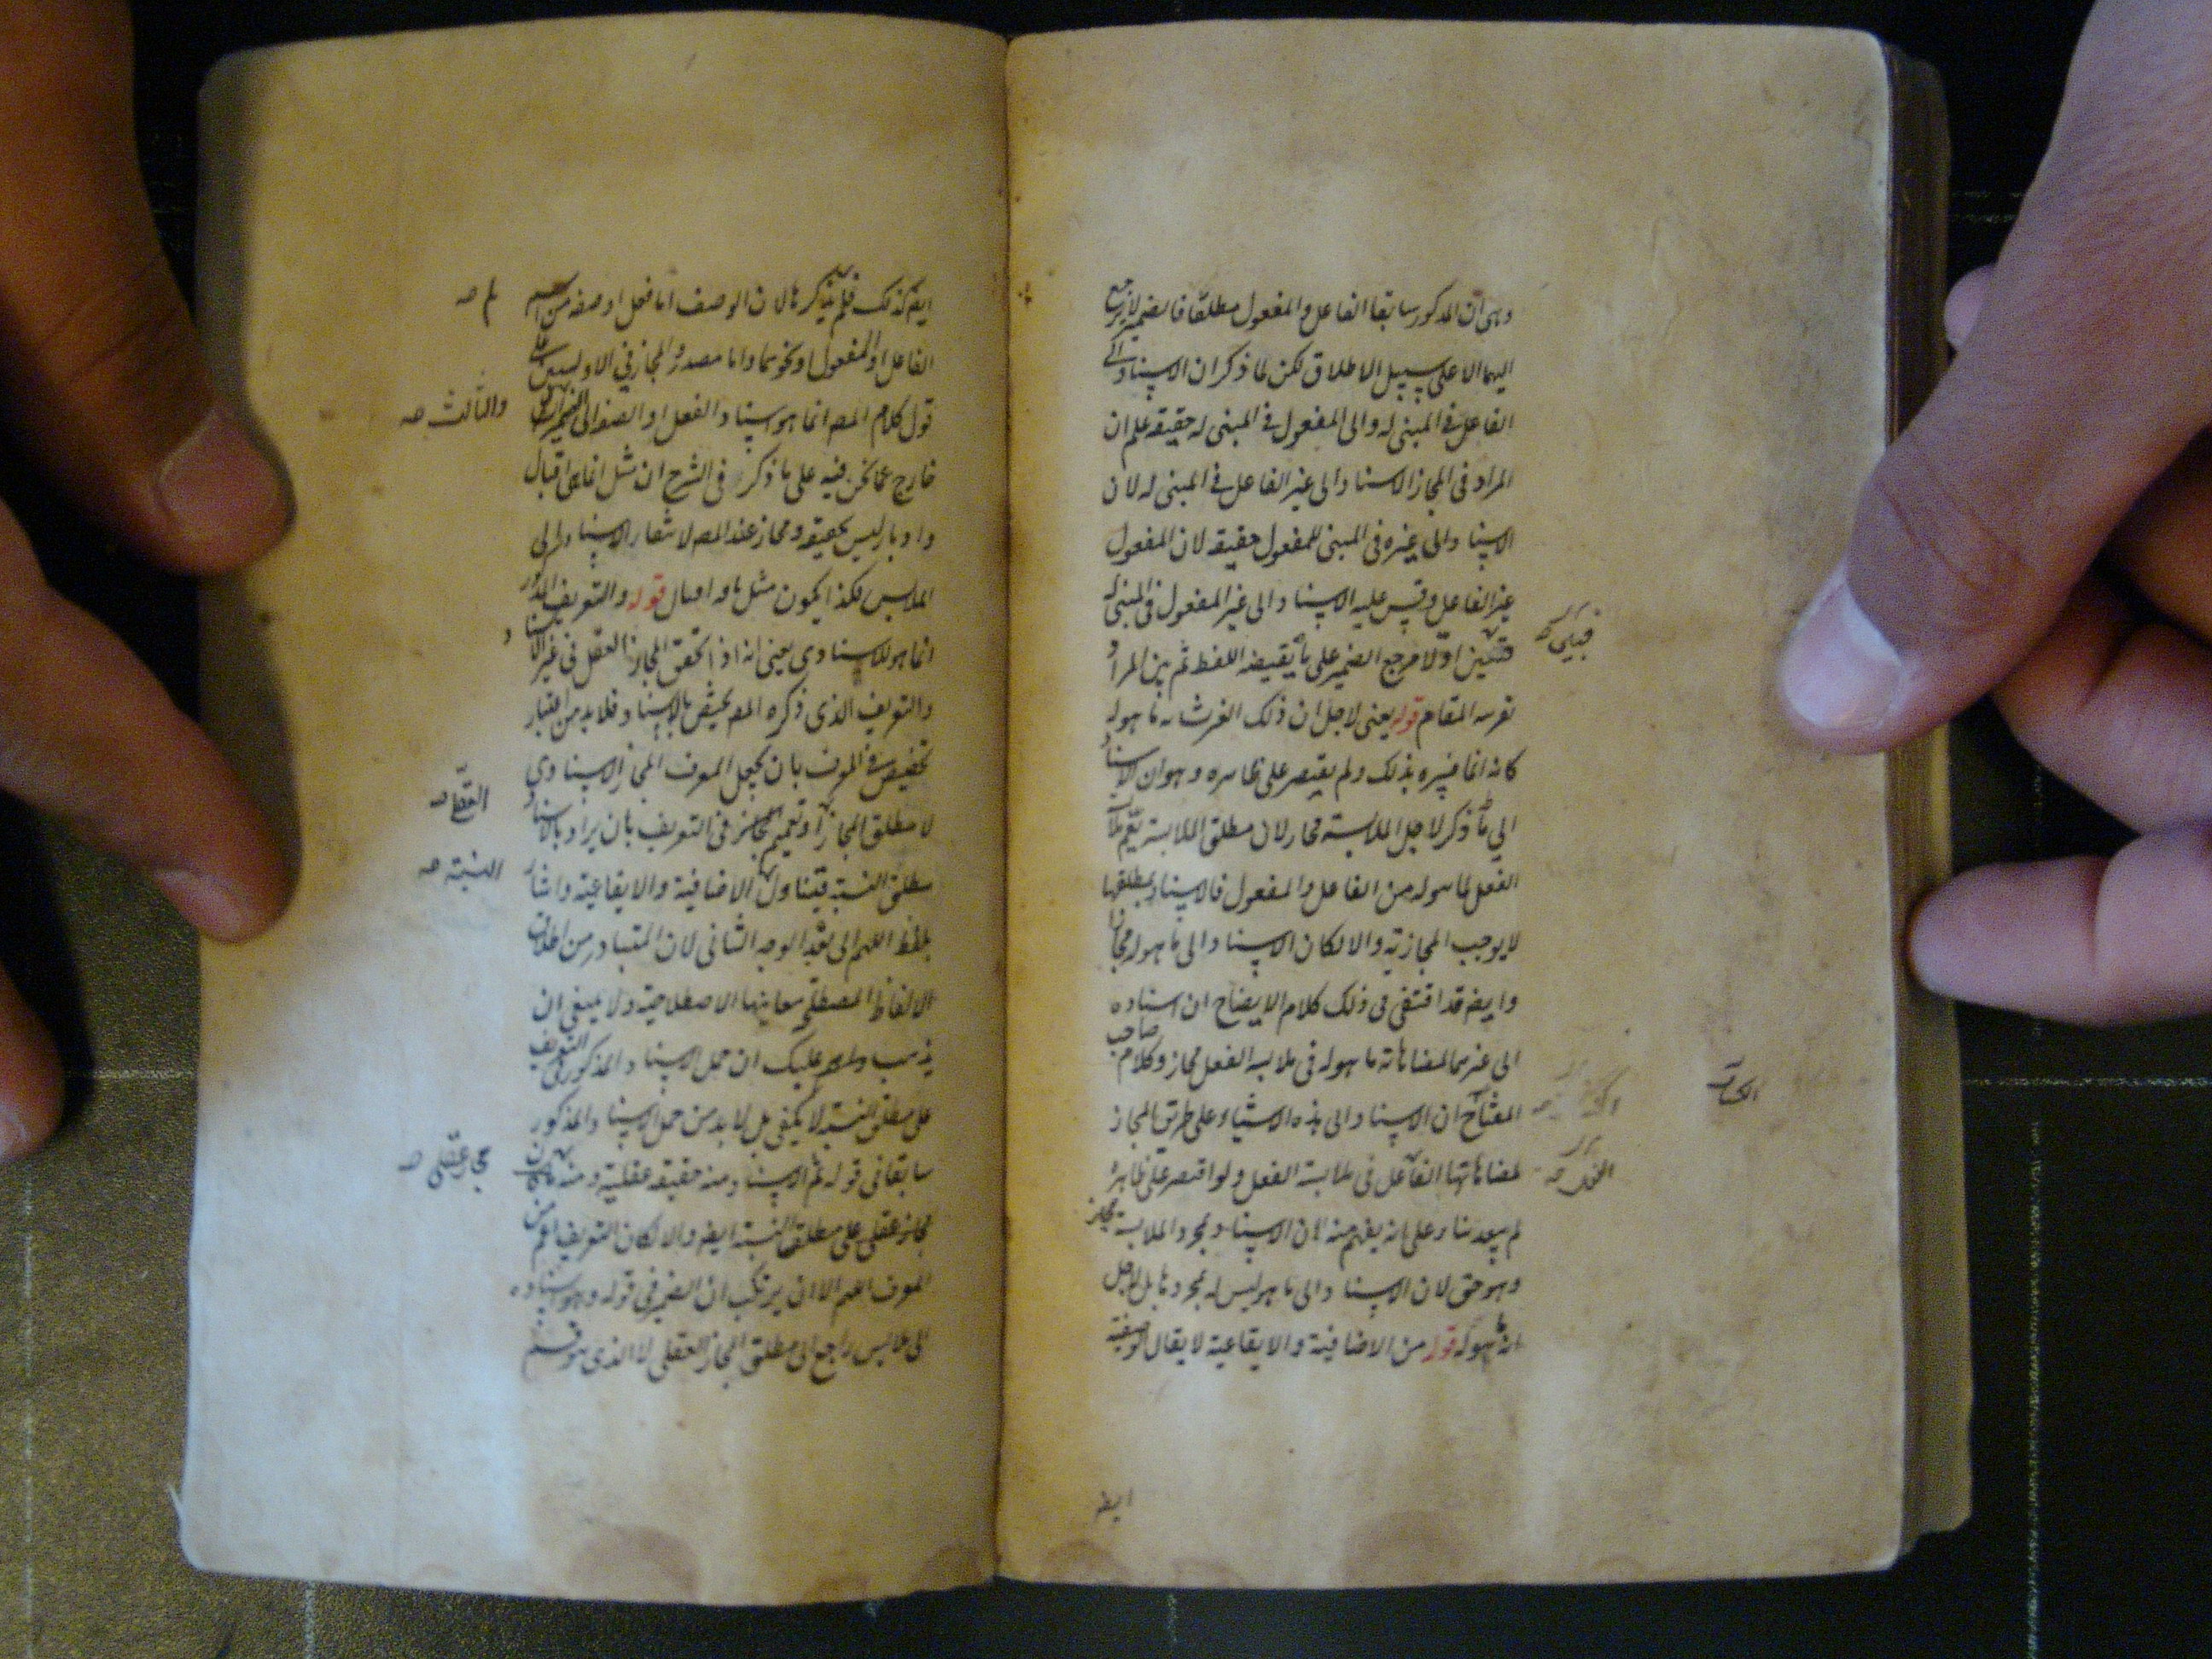 وهى ان المذكور سابقا الفاعل والمفعول مطلقا فالضمير لا يرجع
اليهما الا على سبيل الاطلاق لكن لما ذكر ان الاسناد الى
الفاعل فى المبنى له والى المفعول فى المبنى له حقيقة علم ان
المراد فى المجاز الاسناد الى غير الفاعل فى المبنى له لان
الاسناد الى غيره فى المبنى للمفعول حقيقة لان المفعول
غير الفاعل وقس عليه الاسناد الى غير المفعول فى المبنى له
اولا مرجع الضمير على ما يقتضيه اللفظ ثم بين المراد
المقام قوله يعنى لاجل ان ذلك الغير ما هو له
كانه انما فسره بذلك ولم يقتصر على ظاهره وهو ان الاسناد
الى ما ذكر لاجل الملابسة مجاز لان مطلق الملابسة
الفعل لما هو له من الفاعل والمفعول فالاسناد لمطلقها
لا يوجب المجازية والا لكان الاسناد الى ما هو له مجازا
وايضا قد اقتفى فى ذلك كلام الايضاح ان اسناده
الى غيرهما لمضاهاته ما هو له فى ملابسة الفعل مجاز وكلام صاحب
المفتاح ان الاسناد الى هذه الاشياء على طريق المجاز
لمضاهاتها الفاعل فى ملابسة الفعل ولو اقتصر على ظاهره
لم يبعد بناء على انه يفهم منه ان الاسناد لمجرد الملابسة مجاز
وهو حق لان الاسناد الى ما هو ليس له لمجردها بل لاجل
انه ما هو له قوله من الاضافية والايقاعية لا يقال الوصفية
ايضا
ايضا كذلك فلم لم يذكرها لان الوصف اما فعل او صفة من اسم
الفاعل او المفعول او نحوهما واما مصدر والمجاز فى الاولين على
قول كلام المص انما هو اسناد الفعل او الصفة الى الضمير
خارج عما نحن فيه على ما ذكر فى الشرح ان مثل انما هى اقبال
وادبار ليس بحقيقة ومجاز عند المص لاشعار الاسناد الى
الملابس فكذا يكون مثل قوله والتعريف المذكور
انما هو للاسنادى يعنى انه اذا تحقق المجاز العقلى فى غير الاسناد
والتعريف الذى ذكره المص يختص بالاسناد فلا بد من اعتبار
تخصيص فى المعرف بان يجعل المعرف المجاز الاسنادى
لا مطلق المجاز او تعميم فى التعريف بان يراد بالاسناد
مطلق النسبة فيتناول الاضافية والايقاعية واشار
بلفظ اللهم الى بعد الوجه الثانى لان المتبادر من اطلاق
الالفاظ المصطلح معانيها الاصطلاحية ولا ينبغى ان
يذهب عليك ان حمل الاسناد المذكور فى التعريف
على مطلق النسبة لا يكفى بل لا بد من حمل الاسناد المذكور
سابقا فى قوله ثم الاسناد منه حقيقة عقلية ومنه
مجاز عقلى على مطلق النسبة ايضا والا لكان التعريف اعم من
المعرف اللهم الا ان يرتكب ان الضمير فى قوله وهو اسناده
الى ملابس راجع الى مطلق المجاز العقلى لا الذى هو قسم
لم صح
والثالث صح
العقلى صح
النسبة صح
مجاز عقلى صح